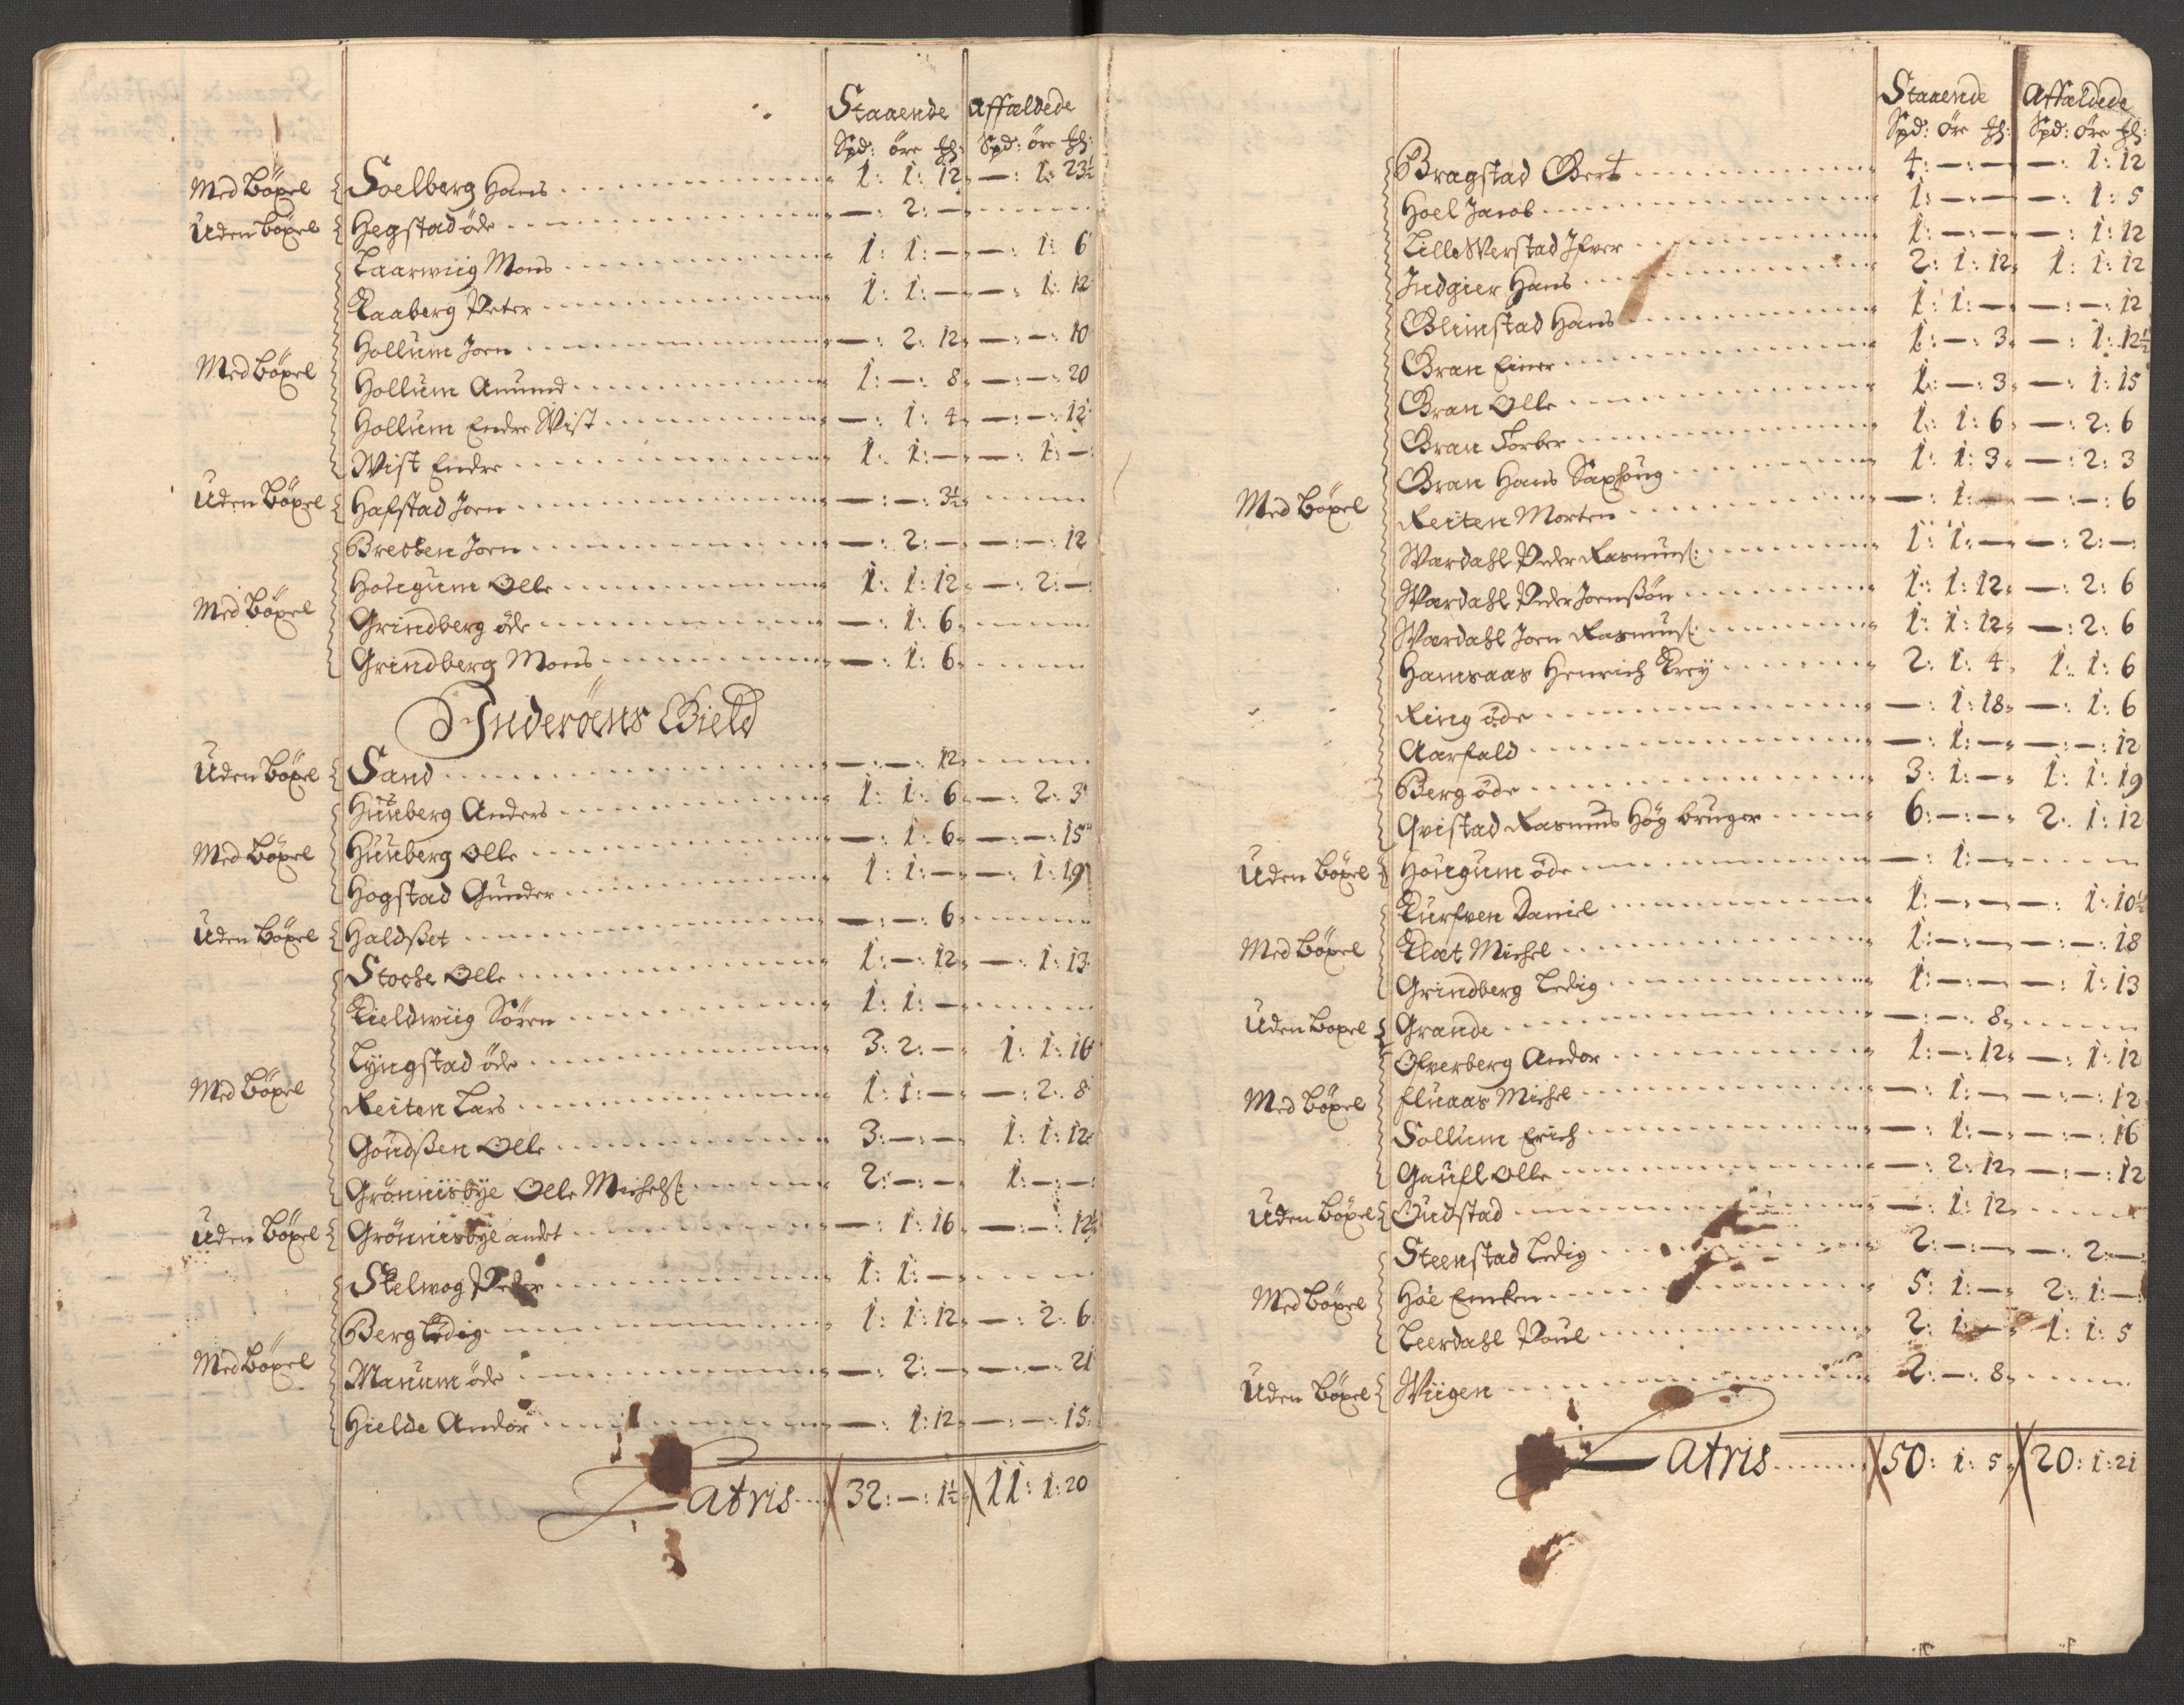 Staaende Affældede
Spd: öre ꝶ: Spd: öre ꝶ:
Med Böxel Soelberg Hans 1: 1: 12 —: 1: 23½
Uden Böxel Hegstad öde —: 2: —
Laarwiig Mons 1: 1: — —: 1: 6
Kaaberg Peter 1: 1: — —: 1: 12
Hollum Joen —: 2: 12 —: —: 10
Med Böxel Hollum Anund 1: —: 8 —: —: 20
Hollum Endre Wist —: 1: 4 —: —: 12
Wist Endre 1: 1: — —: 1: —
Uden Böxel Hafstad Joen —: —: 3½
Brecken Joen —: 2: — —: —: 12
Hougum Olle 1: 1: 12 —: 2: —
Med Böxel Grindberg öde —: 1: 6
Grindberg Mons —: 1: 6
Inderöens Gield
Uden Böxel Sand —: —: 12
Huuberg Anders 1: 1: 6 —: 2: 3
Med Böxel Huuberg Olle —: 1: 6 —: —: 15
Hogstad Gunder 1: 1: — —: 1: 19
Uden Böxel Haldßet —: —: 6
Stoche Olle 1: —: 12 —: 1: 13
Kieldwiig Sören 1: 1: —
Lyngstad öde 3: 2: — 1: 1: 16
Med Böxel Reiten Lars 1: 1: — —: 2: 8
Göndßen Olle 3: —: — 1: 1: 12
Grönnisbye Olle Michels: 2: —: — 1: —: —
Uden Böxel Grönnisbye andet —: 1: 16 —: —: 12½
Skelwog Peter 1: 1: —
Berg Ledig 1: 1: 12 —: 2: 6
Med Böxel Manum öde —: 2: — —: —: 21
Hielde Andor —: 1: 12 —: —: 15
Latris 32: —: 1½ 11: 1: 20
Staaende Affældede
Spd: öre ꝶ: Spd: öre ꝶ:
Bragstad Gert 4: —: — —: 1: 12
Hoel Jacob 1: —: — —: 1: 5
Lille Werstad Ifver 1: —: — —: 1: 12
Indgier Hans 2: 1: 12 1: 1: 12
Glimstad Hans 1: 1: — —: —: 12
Gran Einer 1: —: 3 —: 1: 12½
Gran Olle 1: —: 3 —: 1: 15
Gran Torber 1: 1: 6 —: 2: 6
Gran Hans Saxhoug 1: 1: 3 —: 2: 3
Med Böxel Reiten Morten —: 1: — —: —: 6
Wardahl Peder Rasmus: 1: 1: — —: 2: —
Wardahl Peder Joenßön 1: 1: 12 —: 2: 6
Wardahl Joen Rasmus: 1: 1: 12 —: 2: 6
Hamsaas Henrich Krey 2: 1: 4 1: 1: 6
Ring öde —: 1: 18 —: 1: 6
Aarfald —: 1: — —: —: 12
Berg öde 3: 1: — 1: 1: 19
Qvistad Rasmus Hög bruger 6: —: — 2: 1: 12
Uden Böxel Hougum öde —: 1: —
Kurfven Daniel 1: —: — —: 1: 10½
Med Böxel Klæt Michel 1: —: — —: —: 18
Grindberg Ledig 1: —: — —: 1: 13
Uden Böxel Grande —: —: 8
Ofverberg Andor 1: —: 12 —: 1: 12
Med Böxel Fluaas Michel —: 1: — —: —: 12
Sollum Erich —: 1: — —: —: 16
Gaufl Olle —: 2: 12 —: —: 12
Uden Böxel Gudstad —: 1: 12
Steenstad Ledig 2: —: — —: 2: —
Med Böxel Höe Encken 5: 1: — 2: 1: —
Leerdahl Poul 2: 1: — 1: 1: 5
Uden Böxel Wiigen 2: —: 8
Latris 50: 1: 5 20: 1: 21